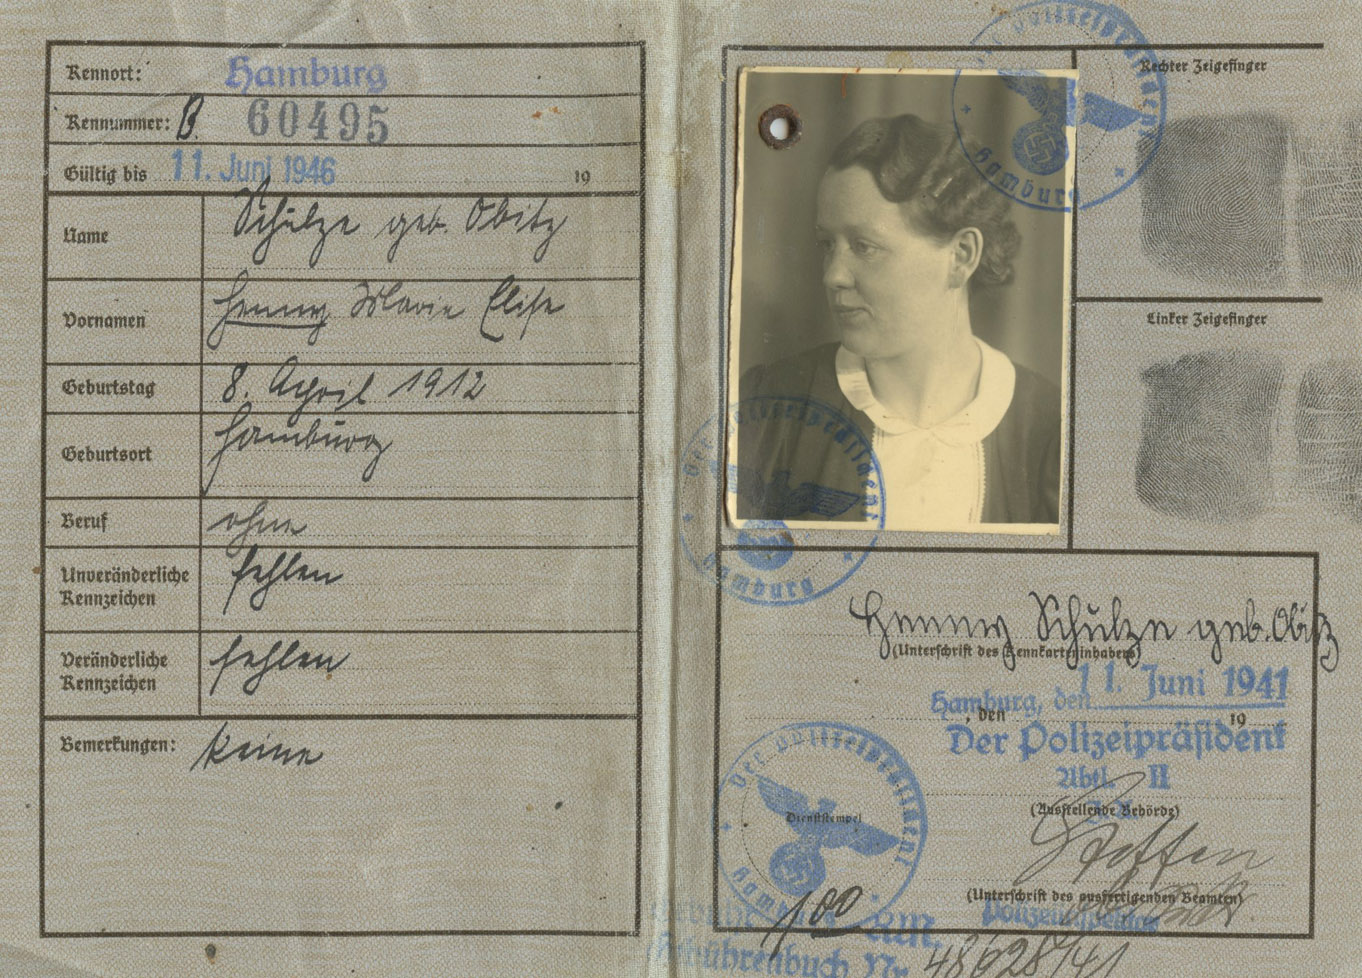 Kennort: Hamburg
Kennummer: B. 60495
Gültig bis 11. Juni 1946 19
Name Schulze geb. Obitz
Vornamen Henny Marie Elise
Geburtstag 8. April 1912
Geburtsort Hamburg
Beruf ohne
Unveränderliche
Kennzeichen fehlen
Veränderliche
Kennzeichen fehlen
Bemerkungen: Keine
Der Polizeipräsident
Hamburg
Rechter Zeigefinger
Linker Zeigefinger
Der Polizeipräsident
Hamburg
Henny Schulze geb. Obitz
(Unterschrift des Kennkarteninhabers)
Hamburg, den 11. Juni 1941
, den 19
Der Polizeipräsident
Abtl. II
(Ausstellende Behörde)
Der Polizeipräsident
Hamburg
Dienststempel
(Unterschrift des ausfertigenden Beamten)
Polizeiinspektor
1,00 RM.
Gebührenbuch Nr. 48628/41